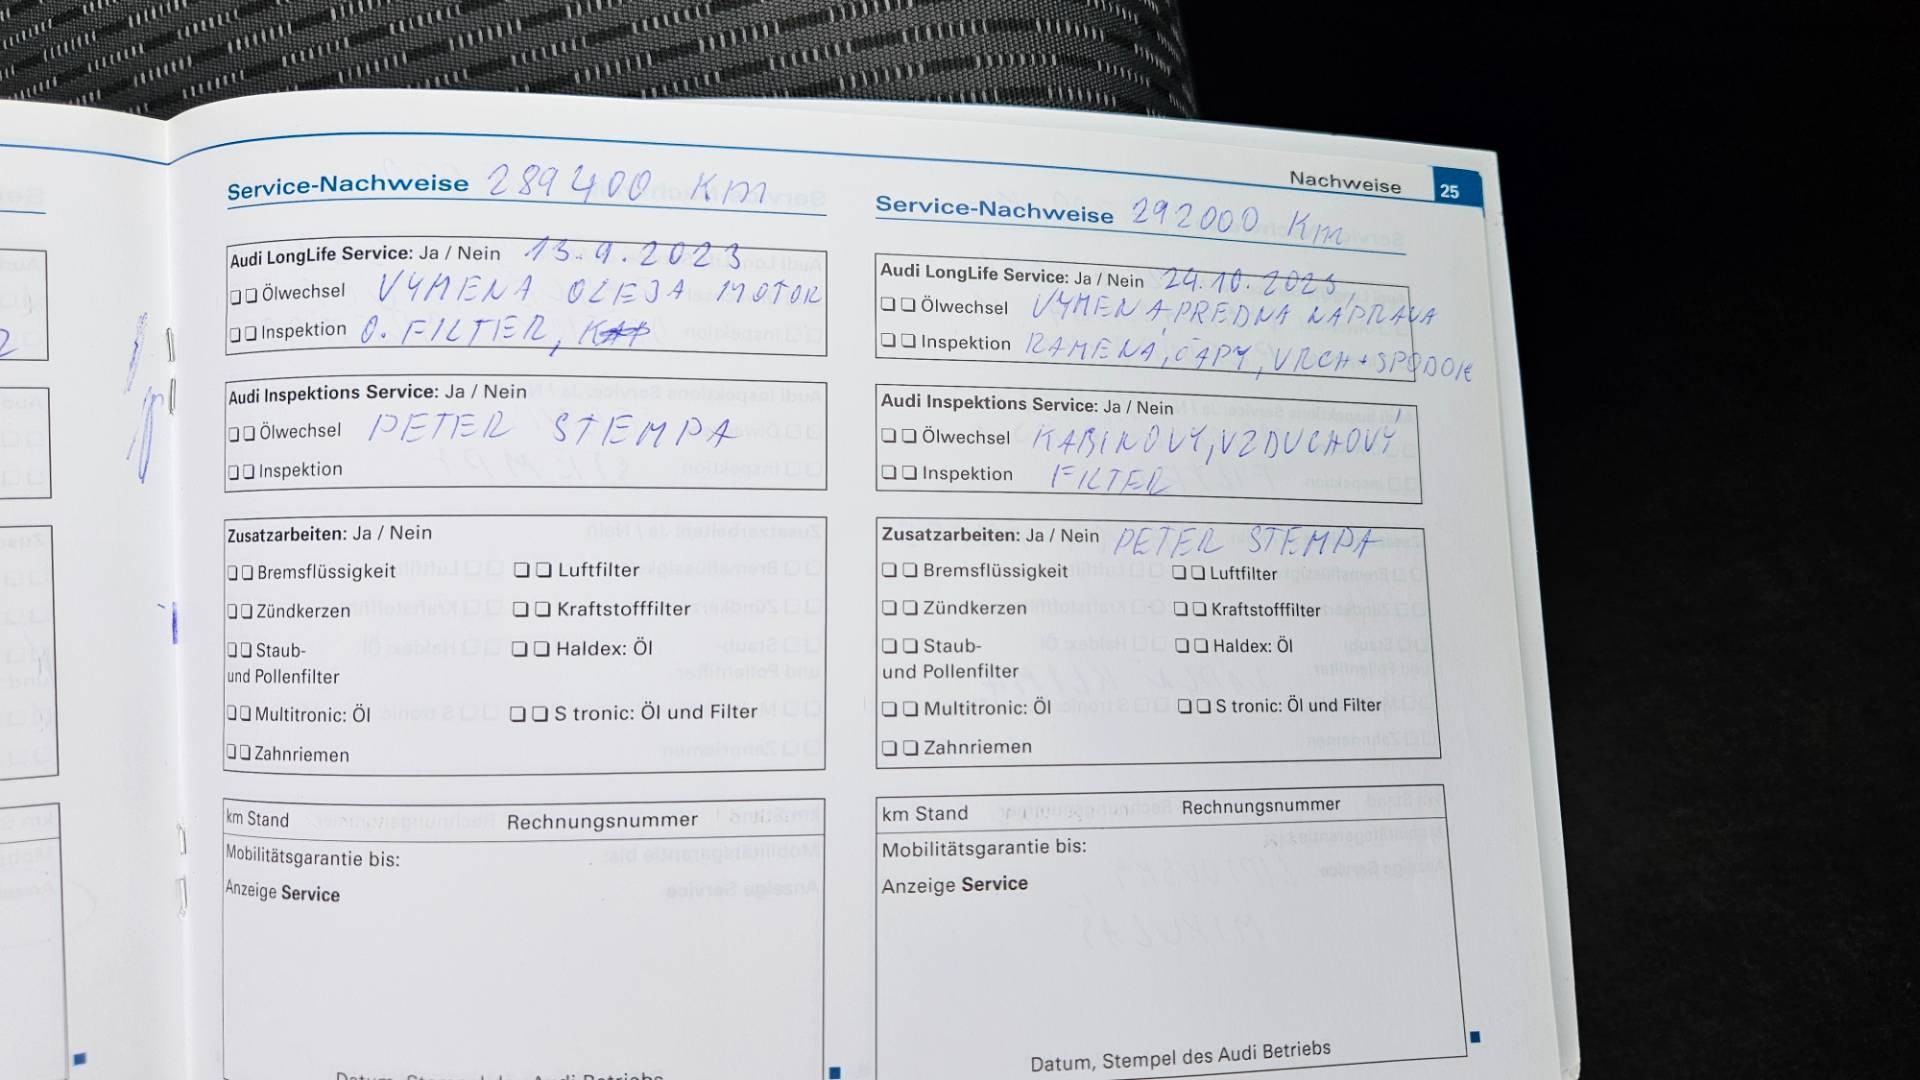 Nachweise 25
Service-Nachweise 289400 Km
Audi LongLife Service: Ja / Nein 13.9.2023
Ölwechsel VÝMENA OLEJA MOTOR
Inspektion O. FILTER,
Audi Inspektions Service: Ja / Nein
Ölwechsel PETER STEMPA
Inspektion
Zusatzarbeiten: Ja / Nein
Bremsflüssigkeit Luftfilter
Zündkerzen Kraftstofffilter
Staub- Haldex: Öl
und Pollenfilter
Multitronic: Öl S tronic: Öl und Filter
Zahnriemen
km Stand Rechnungsnummer
Mobilitätsgarantie bis:
Anzeige Service
Service-Nachweise 292000 Km
Audi LongLife Service: Ja / Nein 24.10.2023
Ölwechsel VYMENA PREDNA NÁPRAVA
Inspektion RAMENÁ, ČAPY, VRCH + SPODOK
Audi Inspektions Service: Ja / Nein
Ölwechsel KABINOVÝ, VZDUCHOVÝ
Inspektion FILTER
Zusatzarbeiten: Ja / Nein PETER STEMPA
Bremsflüssigkeit Luftfilter
Zündkerzen Kraftstofffilter
Staub- Haldex: Öl
und Pollenfilter
Multitronic: Öl S tronic: Öl und Filter
Zahnriemen
km Stand Rechnungsnummer
Mobilitätsgarantie bis:
Anzeige Service
Datum, Stempel des Audi Betriebs